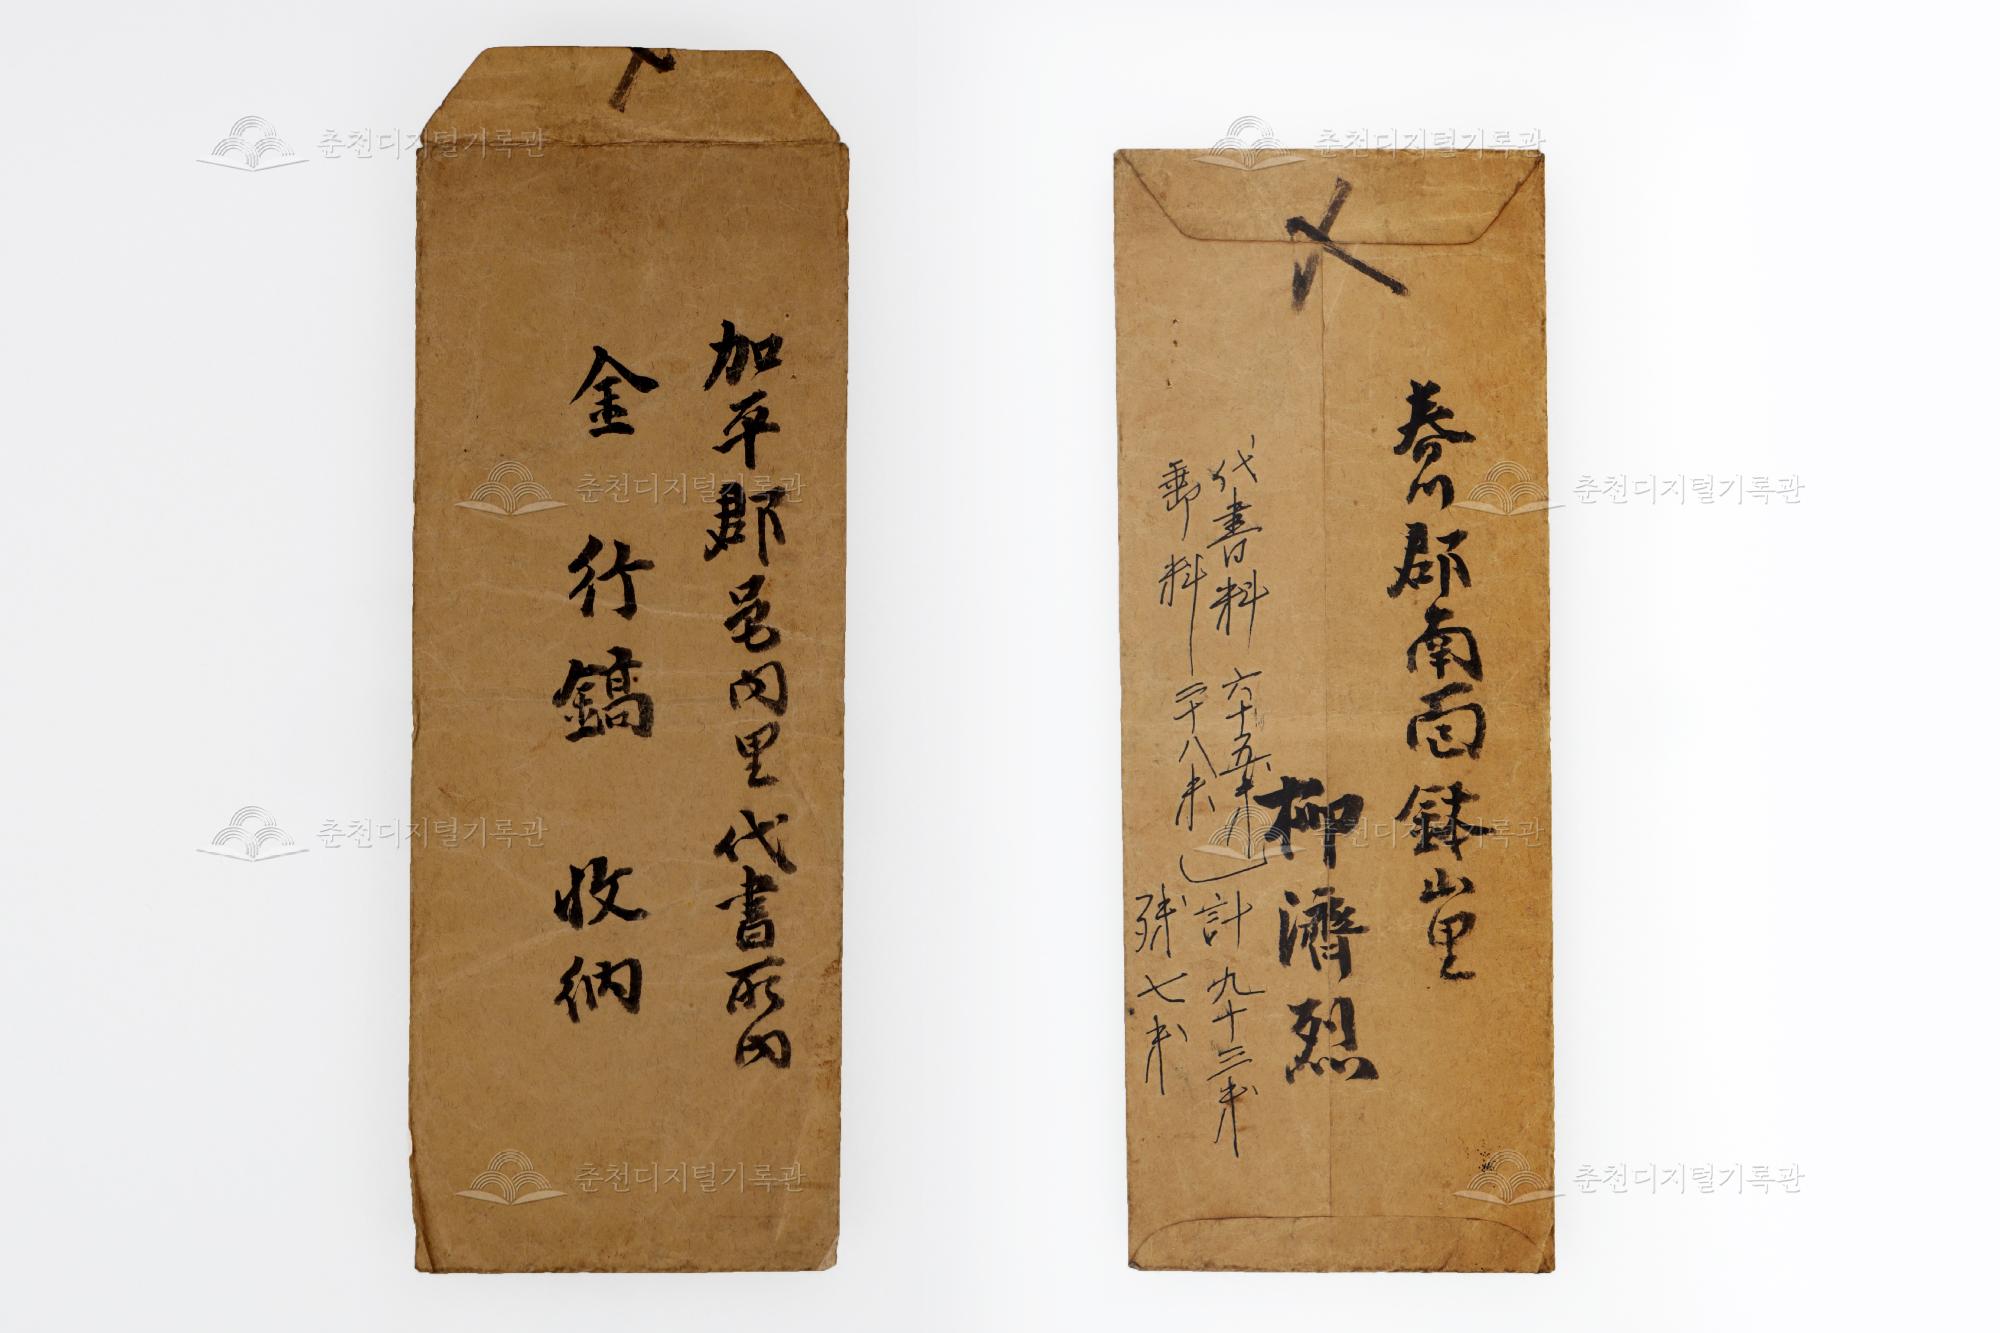 加平郡邑内里代書所内
金行鎬 收納
〆
春川郡南面鉢山里
柳濟烈
代書料 六十五戋
郵料 二十八戋
計九十三戋
残七戋
춘천디지털기록관
춘천디지털기록관
춘천디지털기록관
춘천디지털기록관
춘천디지털기록관
춘천디지털기록관
춘천디지털기록관
춘천디지털기록관